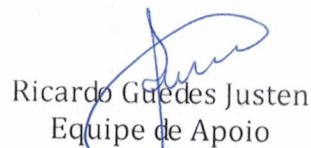 Ricardo Guedes Justen
Equipe de Apoio